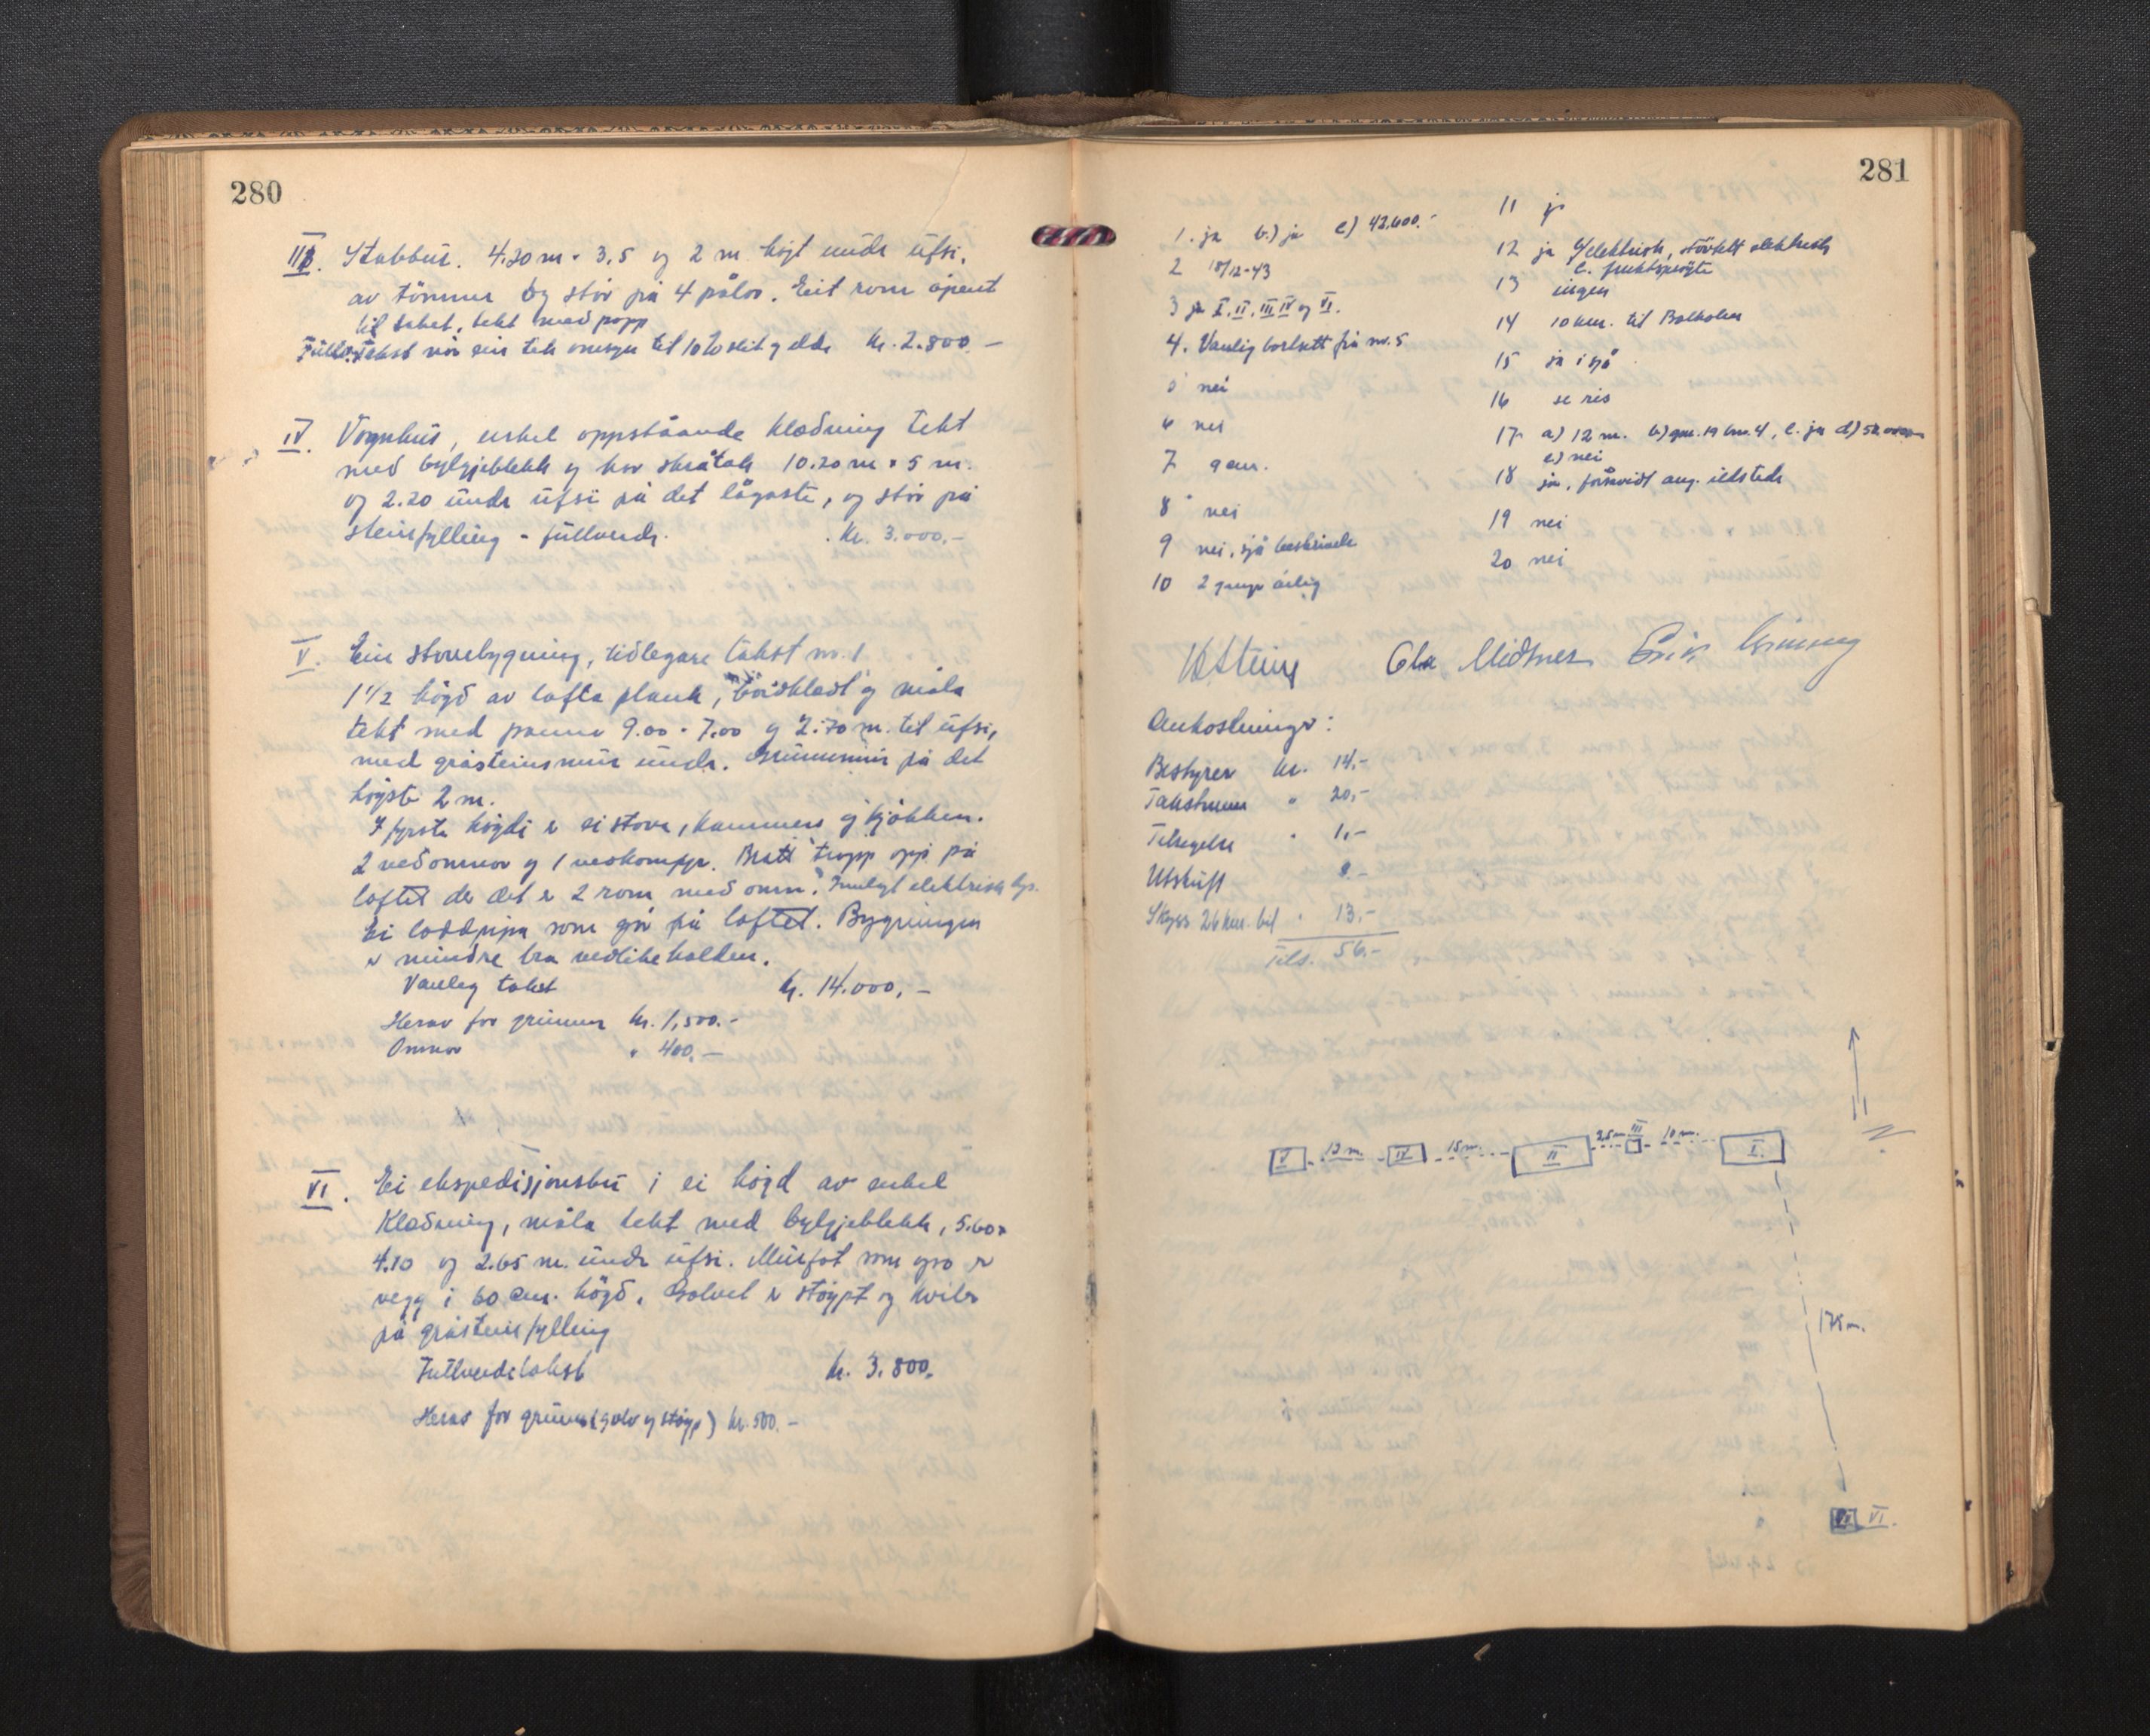 280
III. Stabbur. 4.20 m × 3,5 og 2 m høgt under ufsi,
av tömmer og står på 4 pålar. Eit rom åpent
til taket, tekt med papp
Fullv. Takst når ein tek omsyn til 10% slit og elde kr. 2.800.—
IV. Vognhus, enkel oppståande klædning tekt
med bylgjeblekk og har skråtak 10.20 m × 5 m.
og 2.20 under ufsi på det lågaste, og står på
steinfylling - fullverdi. Kr. 3.000,-
V. Ein stovebygning, tidlegare takst nr. 1
1 1/2 högd av lafta plank, bordklædt og måla
tekt med panner 9.00 × 7.00 og 2.70 m. til ufsi,
med gråsteinsmur under. Grunnmur på det
högste 2 m.
I fyrste høgdi er ei stove, kammers og kjøkken.
2 vedomnar og 1 vedkomfyr. Bratt tropp opp på
loftet der det er 2 rom med omn. Innlagt elektrisk lys.
Ei loddpipa som går på loftet. Bygningen
er mindre bra vedlikehalden.
Vanleg takst kr. 14.000,-
Herav for grunnmur kr. 1,500.-
Omnar " 400.—
VI. Ei ekspedisjonsbu i ei høgd av enkel
Klædning, måla tekt med bylgjeblekk, 5.60 ×
4.10 og 2.65 m. under ufsi. Murfot som er
vegg i 60 cm. högd. Golvet er støypt og kviler
på gråsteinsfylling
Fullverditakst kr. 3.800,
Herav for grunnmur (golv og støyp) kr. 500.-
281
1. ja b.) ja c) 42.600.-
2 18/12-43
3 ja I. II. III IV og VI.
4. Vanlig bortsett frå nr. 5
5 nei
6 nei
7 9 cm.
8 nei
9 nei, sjå beskrivelse
10 2 gonger årlig
11 ja
12 ja b/ elektrisk, störtelt elektrisk
c. fruktsprøyte
13 ingen
14 10 km. til Balholm
15 ja i sjø
16 se ris
17. a) 12 m. b) gnr. 19 bnr. 4, c. ja d) 52.000
e) nei
18 ja, forsåvidt ang. ildsteder
19 nei
20 nei
Ola Midtnes Erik
Omkostninger:
Bestyrer kr. 14.-
Takstmenn " 20,-
Tilsegelse " 1,-
Utskrift 8.-
Skyss 26 km. bil " 13,-
Tils. 56.-
N
V 12 m. IV 15 m. II 25 m III 10 m. I.
175 m.
VI.